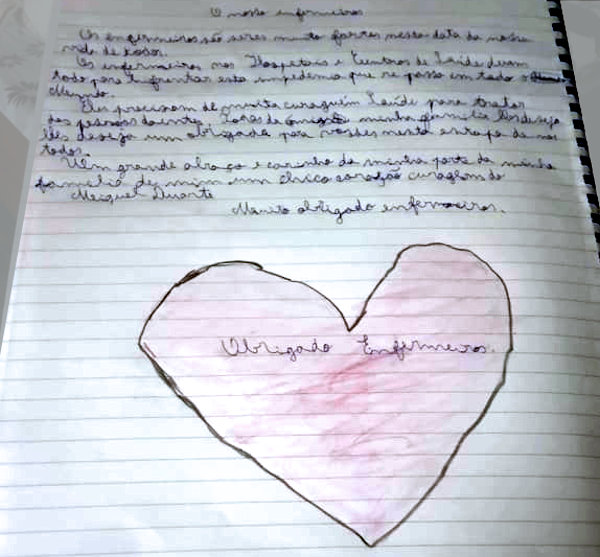 O nosso enfermeiros
Os enfermeiros são seres muito fortes nessa data da nossa
vida de todos.
Os enfermeiros nos Hospetais e Centros de Saúde deram
todo para enfrentar esta impedemia que se passa em todo o
Mundo.
Eles precisam de muita curaguim Saúde para tratar
das pessoas doentes. minha família
lles deseja um obrigada para
todos.
Um grande abraço e carinho da minha parte da minha
família de mim um chico coração
Meiguel Duarte
Muito obrigado enfermeiros.
Obrigado Enfermeiros.